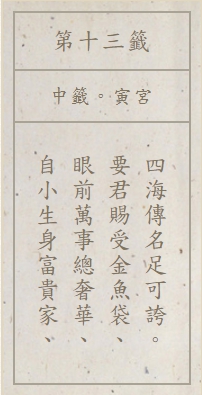 第十三籤
中籤。寅宮
四海傳名足可誇。
要君賜受金魚袋、
眼前萬事總奢華、
自小生身富貴家、